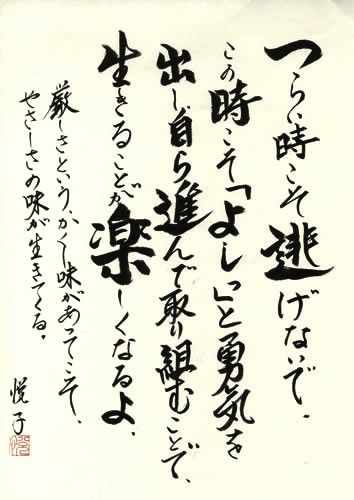 つらい時こそ逃げないで。
この時こそ「よし」と勇気を
出し、自ら進んで取り組むことで、
生きることが楽しくなるよ。
厳しさという、かくし味があってこそ、
やさしさの味が生きてくる。
悦子